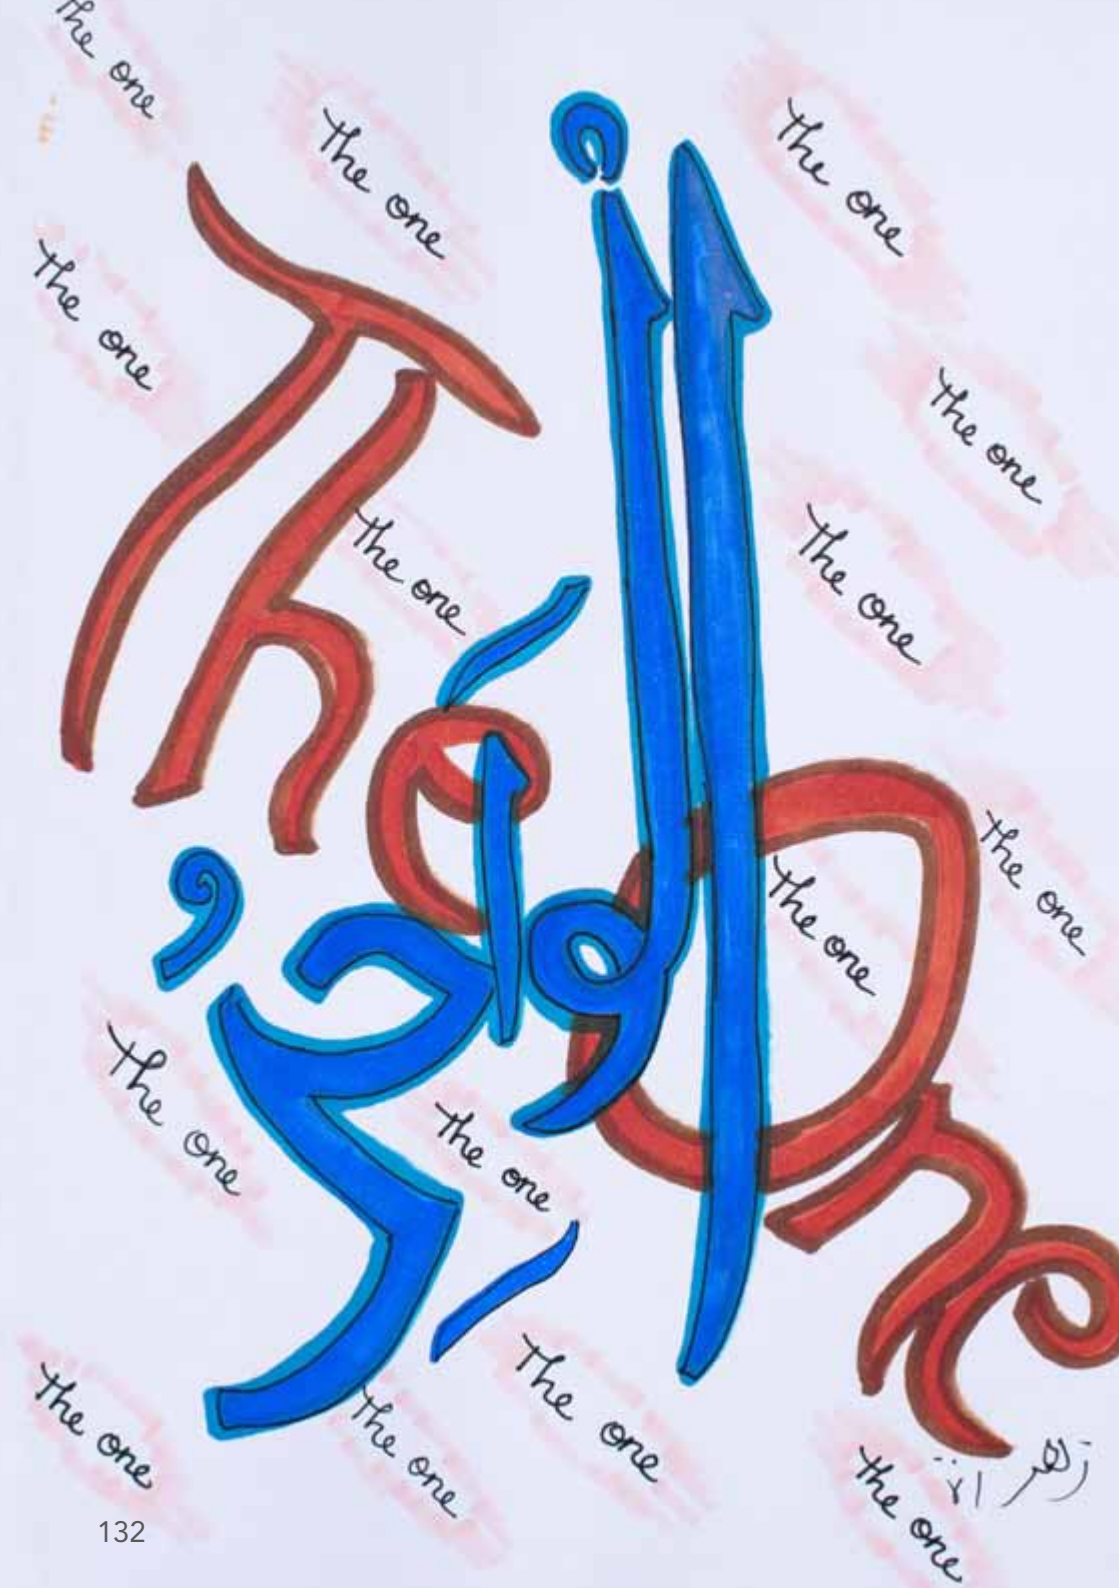 The one
The one
The one
The one
The one
The one
The one
The One
الْوَاحِدُ
The one
The one
The one
The one
The one
The one
The one
The one
132